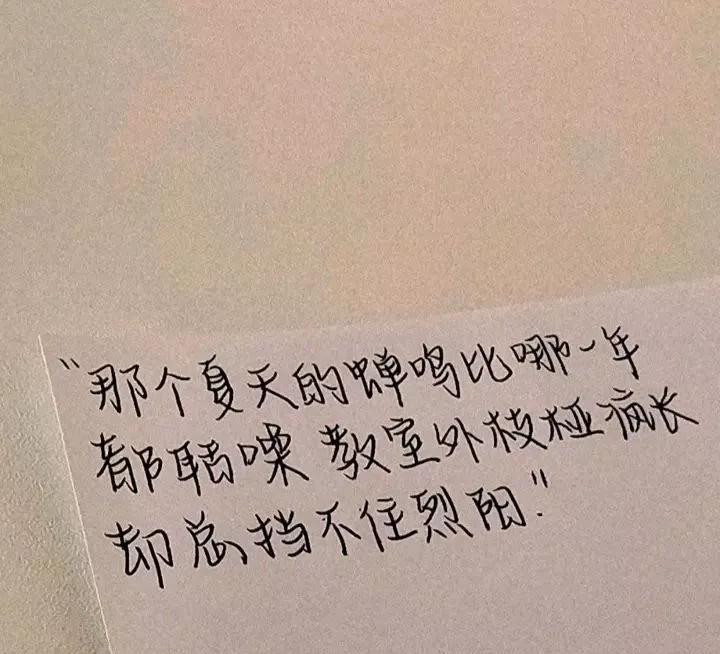 “那个夏天的蝉鸣比哪一年
都聒噪 教室外枝桠疯长
却总挡不住烈阳.”